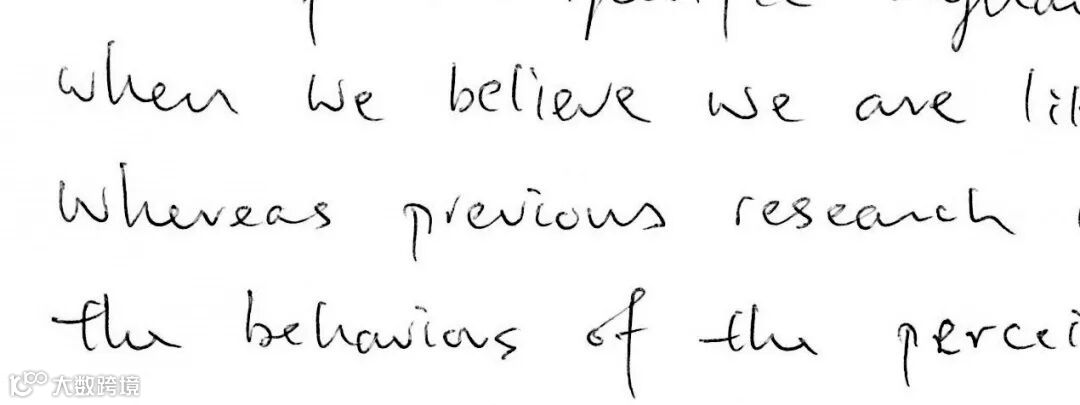 when we believe we are
whereas previous research
the behaviors of the
大数跨境